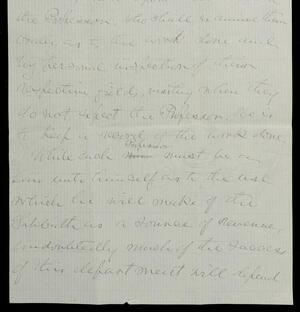 the Professor, who shall examine them
orally as to the work done and
by personal inspection of their
respective field, visiting when they
do not expect the Professor, so as
to keep a record of the work done
Professor
While each must be a
law unto himself as to the use
which he will make of the
as a Source of Revenue,
undoubtedly much of the Success
of this department will depend